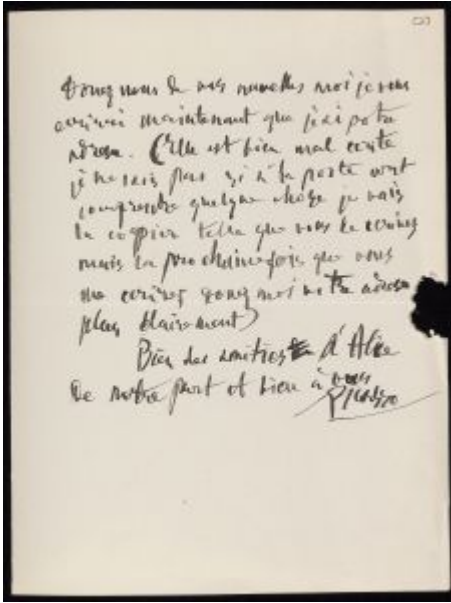 Donez nous de vos nouvelles moi je vous
ecrirai maintenant que j'ai votre
adresse. (Elle est bien mal ecrite
je ne sais pas si à la poste vont
comprendre quelque chose je vais
la coppier telle que vous la ecrives
mais la prochaine fois que vous
me ecrires donez moi votre adresse
plus clairement)
Bien des amities à Alice
De notre part et bien à vous
Picasso